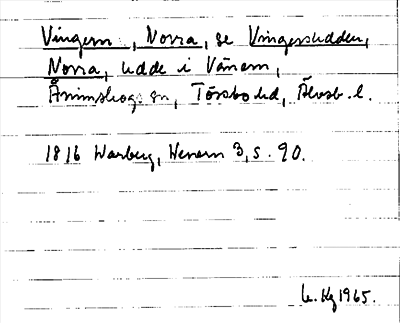 Vingern, Norra, se Vingersudden,
Norra, udde i Vänern,
Ånimskogs sn, Tössbo hd, Älvsb. l.
1816 Warberg, Wenern 3, s. 90.
1965.